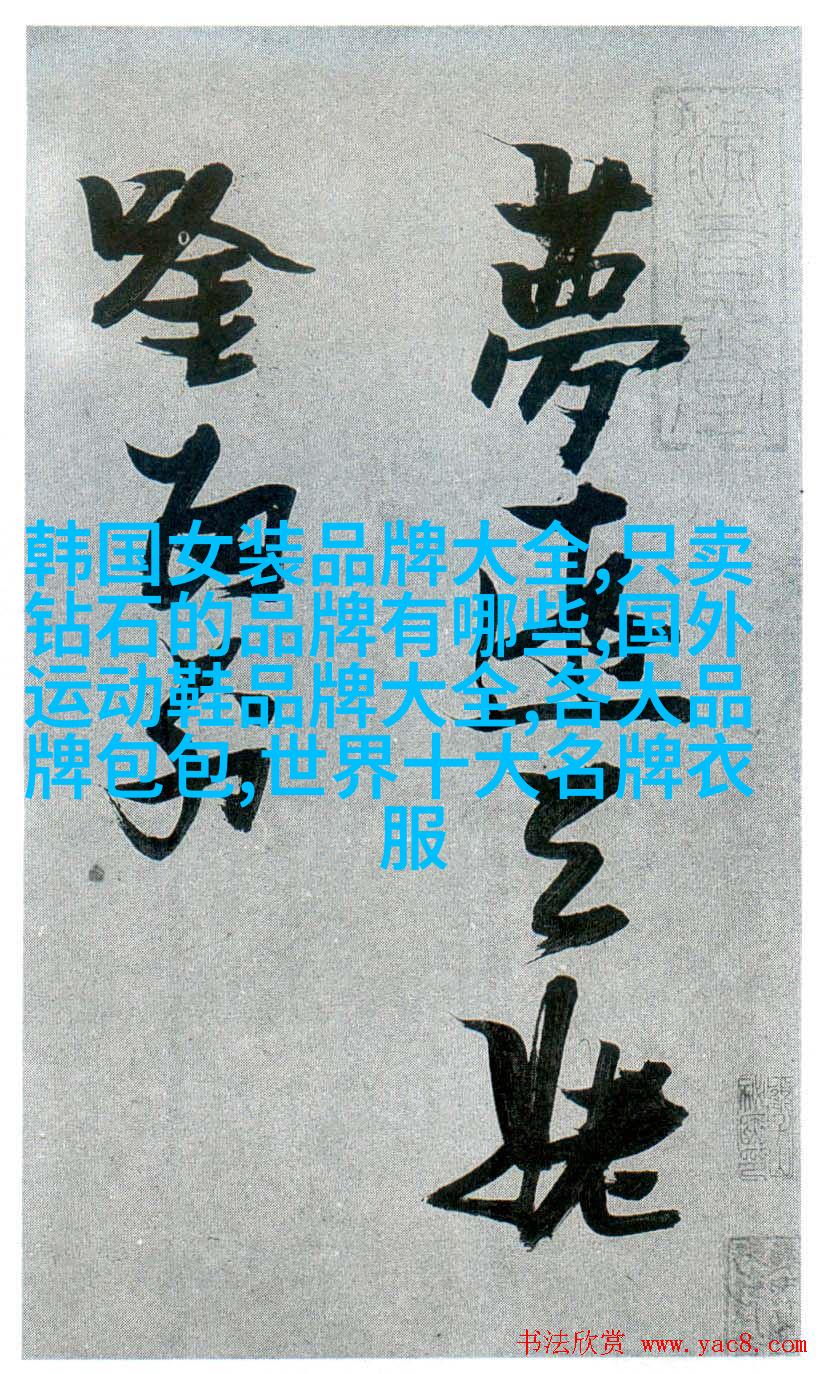 夢遊天姥
唫留別
韩国女装品牌大全,只卖
钻石的品牌有哪些,国外
运动鞋品牌大全,各大品
牌包包,世界十大名牌衣
服
书法欣赏 www.yac8.com